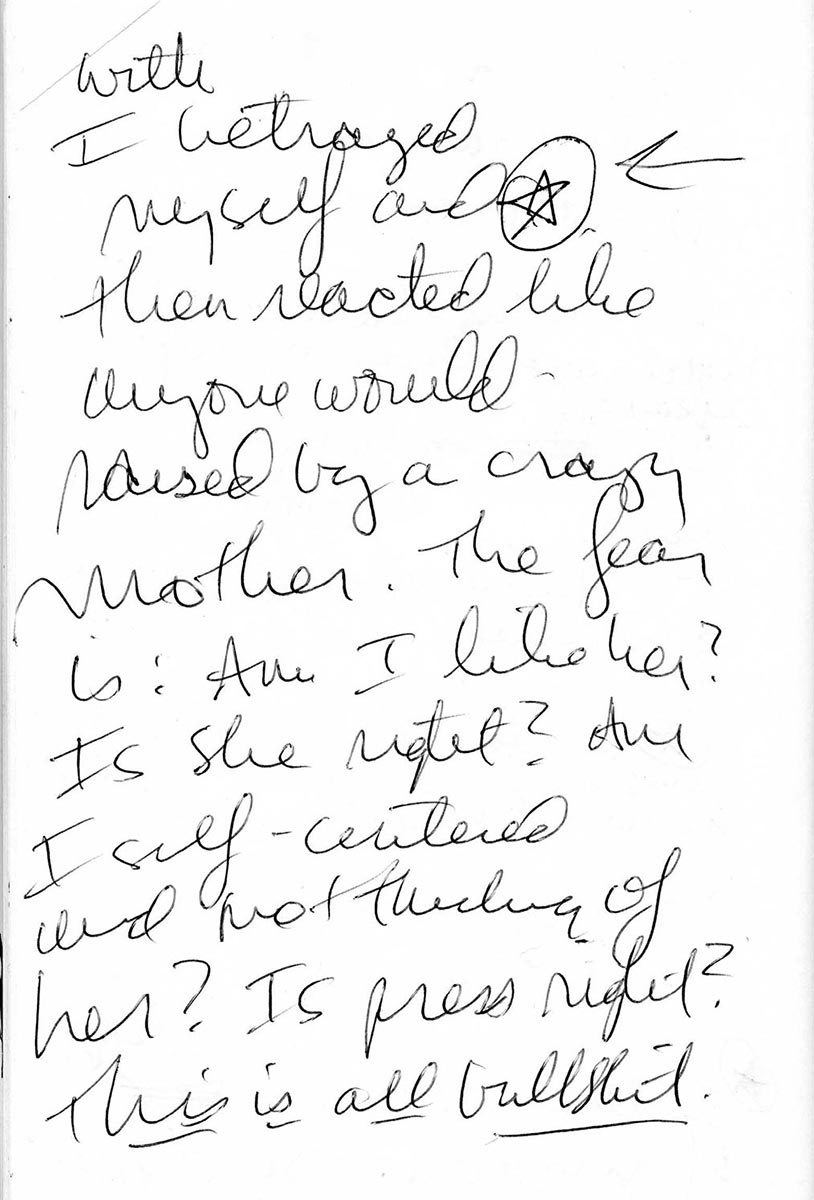 with
I betrayed
myself and
then reacted like
anyone would -
raised by a crazy
Mother. The fear
is: Am I like her?
Is she right? Am
I self-centered
and not thinking of
her? Is press right?
This is all bullshit.